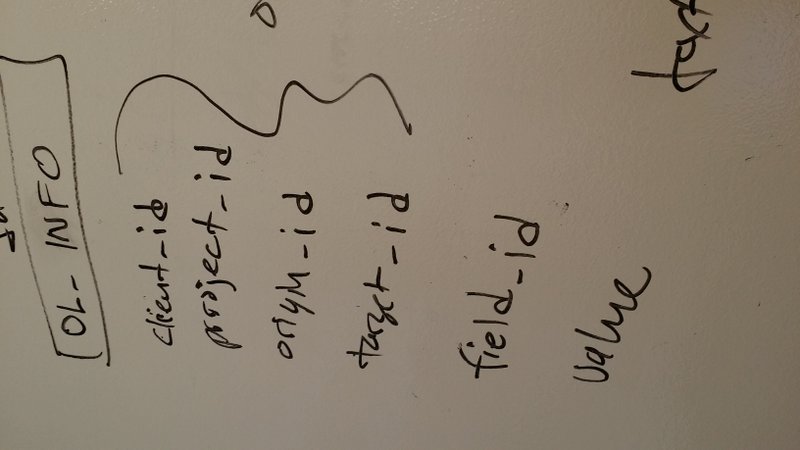 OL-INFO
client_id
project_id
origin_id
target_id
field_id
value
text